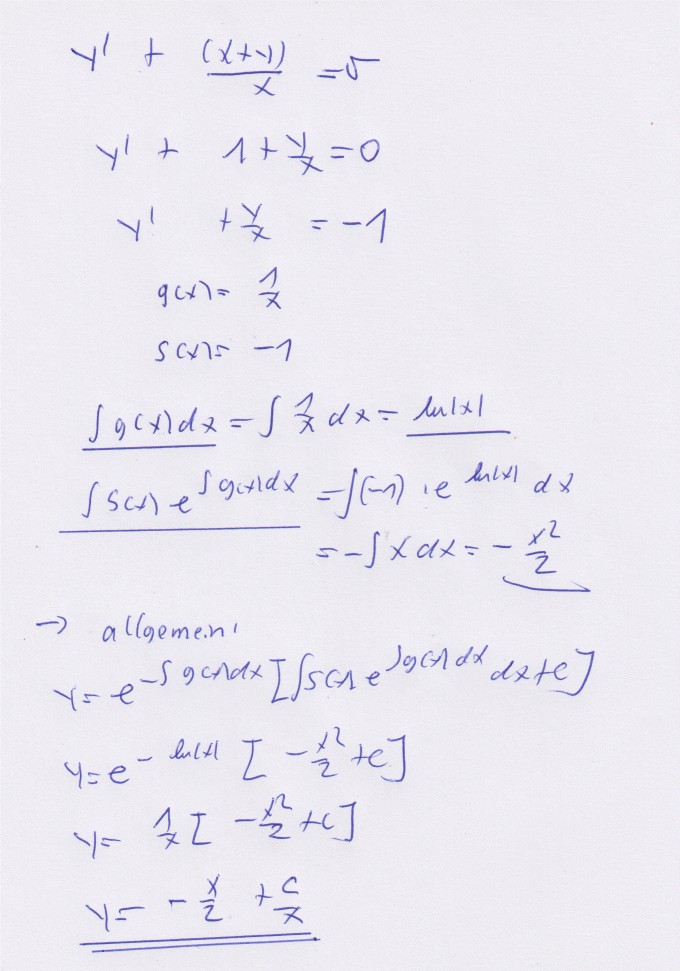 y' + (x+y)/x = 0
y' + 1 + y/x = 0
y' + y/x = -1
g(x) = 1/x
s(x) = -1
∫g(x)dx = ∫ 1/x dx = ln|x|
∫s(x) e^∫g(x)dx = ∫(-1) · e^ln|x| dx
= -∫x dx = - x²/2
→ allgemein:
y = e^-∫g(x)dx [∫s(x) e^∫g(x)dx dx + c]
y = e^-ln|x| [ -x²/2 + c]
y = 1/x [ -x²/2 + c]
y = - x/2 + c/x